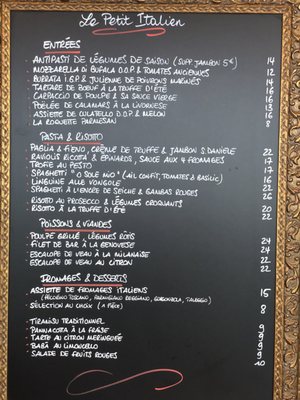 Le Petit Italien
ENTRÉES
- ANTIPASTI DE LÉGUMES DE SAISON (SUPP. JAMBON 5€) 14
- MOZZARELLA DI BUFALA D.O.P & TOMATES ANCIENNES 12
- BURRATA I.G.P & JULIENNE DE POIVRONS MARINÉS 14
- TARTARE DE BŒUF À LA TRUFFE D'ÉTÉ 16
- CARPACCIO DE POULPE & SA SAUCE VIERGE 16
- POÊLÉE DE CALAMARS À LA LIVORNESE 13
- ASSIETTE DE CULATELLO D.O.P & MELON 16
- LA ROQUETTE PARMESAN 8
PASTA & RISOTTO
- PAGLIA & FIENO, CRÈME DE TRUFFE & JAMBON S. DANIELE 22
- RAVIOLIS RICOTTA & ÉPINARDS, SAUCE AUX 4 FROMAGES 17
- TROFIE AU PESTO 17
- SPAGHETTI "O SOLE MIO" (AIL CONFIT, TOMATES & BASILIC) 16
- LINGUINE ALLE VONGOLE 22
- SPAGHETTI À L'ENCRE DE SEICHE & GAMBAS ROUGES 26
- RISOTTO AU PROSECCO & LÉGUMES CROQUANTS 20
- RISOTTO À LA TRUFFE D'ÉTÉ 22
POISSONS & VIANDES
- POULPE GRILLÉ, LÉGUMES RÔTIS 24
- FILET DE BAR À LA GENOVESE 24
- ESCALOPE DE VEAU À LA MILANAISE 22
- ESCALOPE DE VEAU AU CITRON 22
FROMAGES & DESSERTS
- ASSIETTE DE FROMAGES ITALIENS 15
(PECORINO TOSCANO, PARMIGIANO REGGIANO, GORGONZOLA, TALEGGIO)
- SÉLECTION AU CHOIX (1 PIÈCE) 8
- TIRAMISU TRADITIONNEL 9
- PANNACOTTA À LA FRAISE 9
- TARTE AU CITRON MERINGUÉE 9
- BABÀ AU LIMONCELLO 9
- SALADE DE FRUITS ROUGES 10